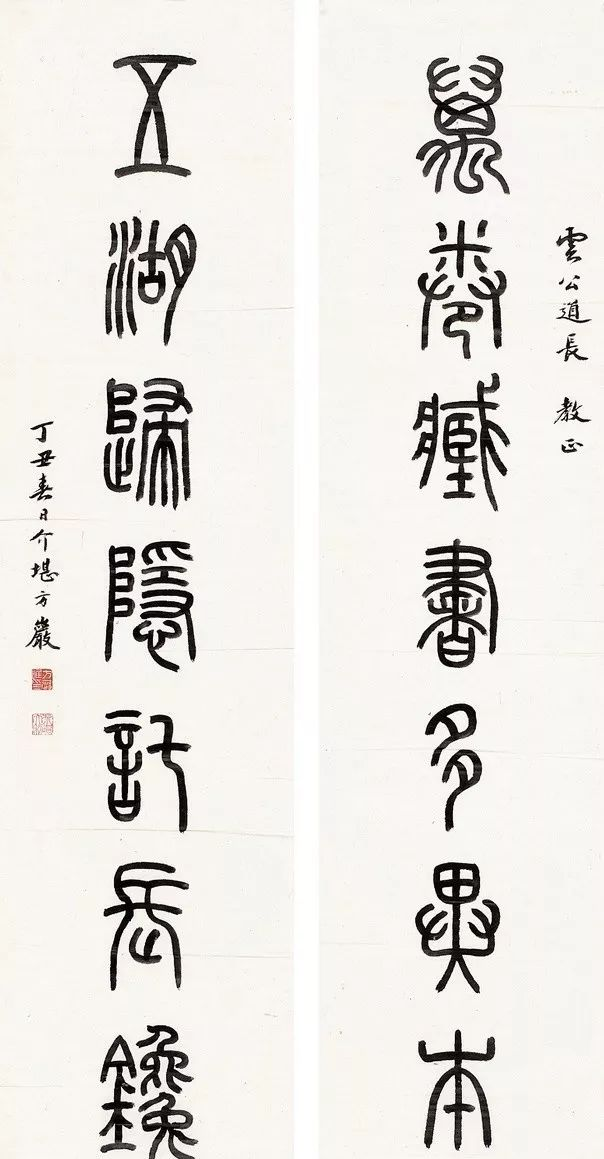 雲公道長 教正
萬卷藏書多異本
五湖歸隱託長鑱
丁丑春日介堪方巖